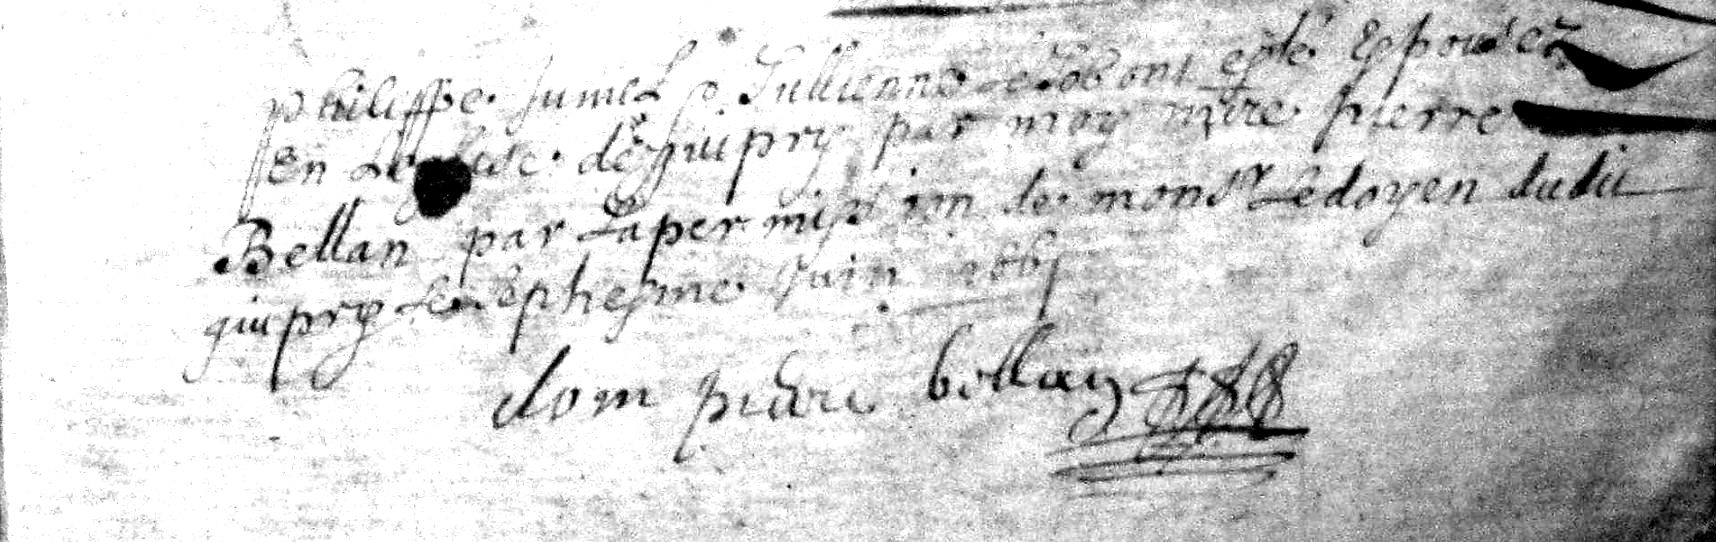 Philippe Jumel & Jullienne Lecoc ont esté Espousez
En Leglise de guipry par moy m're pierre
Bellan par La permission de mons'r Ledoyen dudit
guipry Le septiesme Juin
dom pierre bellan